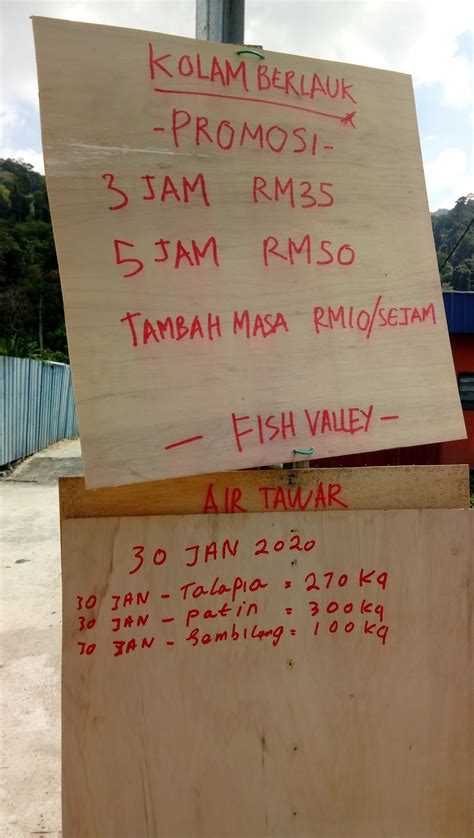 KOLAM BERLAUK
-PROMOSI-
3 JAM RM35
5 JAM RM50
TAMBAH MASA RM10/SEJAM
— FISH VALLEY —
AIR TAWAR
30 JAN 2020
30 JAN - Talapia = 270 Kg
30 JAN - patin = 300 Kg
30 JAN - Sembilang = 100 Kg